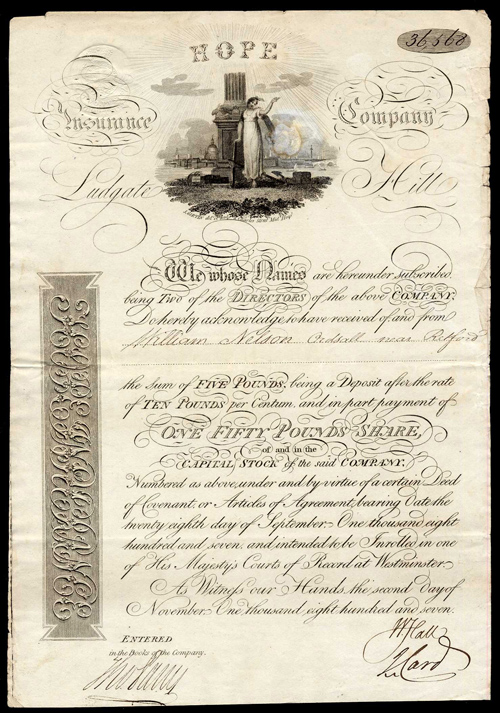 36,568
HOPE
Insurance Company
Ludgate Hill
We whose Names are hereunder subscribed,
being Two of the DIRECTORS of the above COMPANY,
Do hereby acknowledge, to have received of, and from
William Nelson Ordsall near Retford
the sum of FIVE POUNDS, being a Deposit after the rate
of TEN POUNDS per Centum, and in part payment of
ONE FIFTY POUNDS SHARE,
of and in the
CAPITAL STOCK of the said COMPANY,
Numbered as above, under and by virtue of a certain Deed
of Covenant, or Articles of Agreement, bearing date the
twenty eighth day of September, One thousand eight
hundred and seven, and intended to be Inrolled in one
of His Majesty's Courts of Record at Westminster.
As Witness our Hands, the second Day of
November, One thousand, eight hundred and seven.
ENTERED
in the Books of the Company.